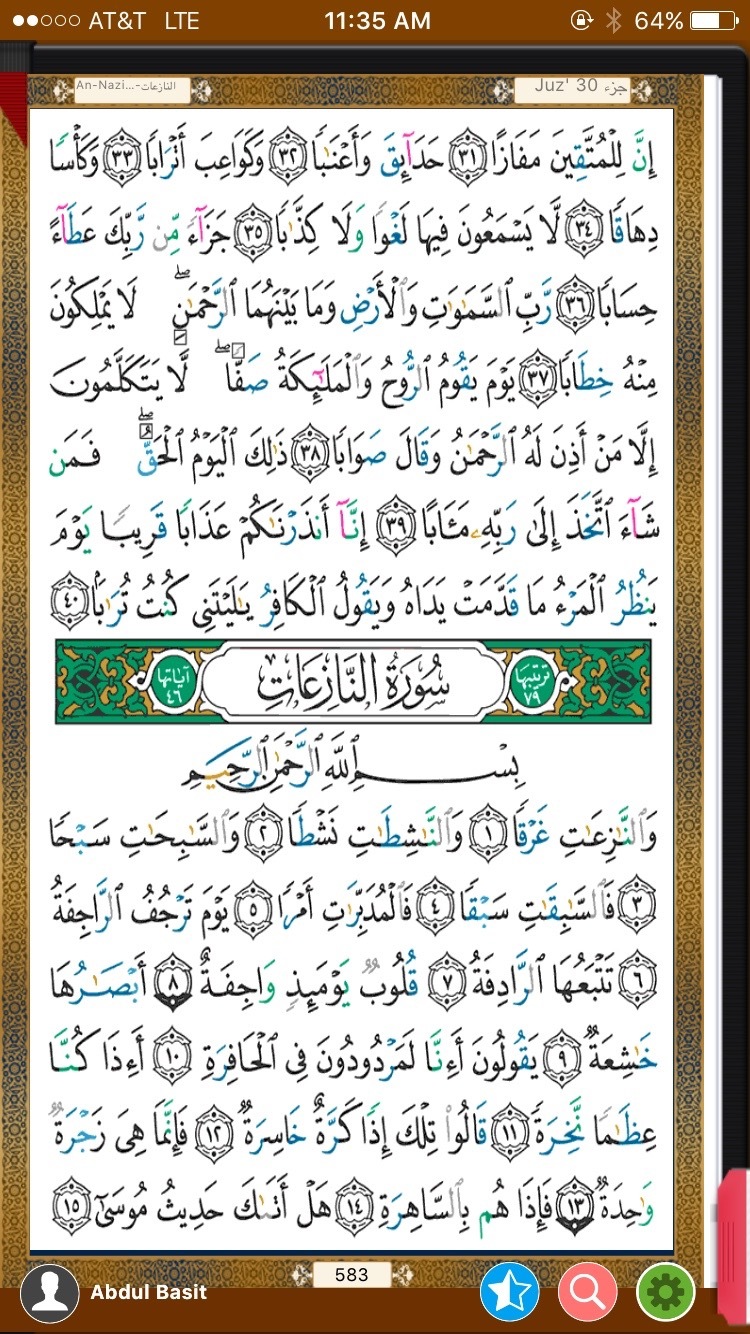 AT&T LTE 11:35 AM 64%
An-Nazi...-النازعات Juz' 30 جزء
إِنَّ لِلْمُتَّقِينَ مَفَازًا ٣١ حَدَآئِقَ وَأَعْنَٰبًا ٣٢ وَكَوَاعِبَ أَتْرَابًا ٣٣ وَكَأْسًا
دِهَاقًا ٣٤ لَّا يَسْمَعُونَ فِيهَا لَغْوًا وَلَا كِذَّٰبًا ٣٥ جَزَآءً مِّن رَّبِّكَ عَطَآءً
حِسَابًا ٣٦ رَّبِّ ٱلسَّمَٰوَٰتِ وَٱلْأَرْضِ وَمَا بَيْنَهُمَا ٱلرَّحْمَٰنِۖ لَا يَمْلِكُونَ
مِنْهُ خِطَابًا ٣٧ يَوْمَ يَقُومُ ٱلرُّوحُ وَٱلْمَلَٰٓئِكَةُ صَفًّاۖ لَّا يَتَكَلَّمُونَ
إِلَّا مَنْ أَذِنَ لَهُ ٱلرَّحْمَٰنُ وَقَالَ صَوَابًا ٣٨ ذَٰلِكَ ٱلْيَوْمُ ٱلْحَقُّۖ فَمَن
شَآءَ ٱتَّخَذَ إِلَىٰ رَبِّهِۦ مَـَٔابًا ٣٩ إِنَّآ أَنذَرْنَٰكُمْ عَذَابًا قَرِيبًا يَوْمَ
يَنظُرُ ٱلْمَرْءُ مَا قَدَّمَتْ يَدَاهُ وَيَقُولُ ٱلْكَافِرُ يَٰلَيْتَنِى كُنتُ تُرَٰبًۢا ٤٠
ترتيبها ٧٩ سُورَةُ النَّازِعَاتِ آياتها ٤٦
بِسْمِ ٱللَّهِ ٱلرَّحْمَٰنِ ٱلرَّحِيمِ
وَٱلنَّٰزِعَٰتِ غَرْقًا ١ وَٱلنَّٰشِطَٰتِ نَشْطًا ٢ وَٱلسَّٰبِحَٰتِ سَبْحًا
٣ فَٱلسَّٰبِقَٰتِ سَبْقًا ٤ فَٱلْمُدَبِّرَٰتِ أَمْرًا ٥ يَوْمَ تَرْجُفُ ٱلرَّاجِفَةُ
٦ تَتْبَعُهَا ٱلرَّادِفَةُ ٧ قُلُوبٌ يَوْمَئِذٍ وَاجِفَةٌ ٨ أَبْصَٰرُهَا
خَٰشِعَةٌ ٩ يَقُولُونَ أَءِنَّا لَمَرْدُودُونَ فِى ٱلْحَافِرَةِ ١٠ أَءِذَا كُنَّا
عِظَٰمًا نَّخِرَةً ١١ قَالُوا۟ تِلْكَ إِذًا كَرَّةٌ خَاسِرَةٌ ١٢ فَإِنَّمَا هِىَ زَجْرَةٌ
وَٰحِدَةٌ ١٣ فَإِذَا هُم بِٱلسَّاهِرَةِ ١٤ هَلْ أَتَىٰكَ حَدِيثُ مُوسَىٰٓ ١٥
583
Abdul Basit